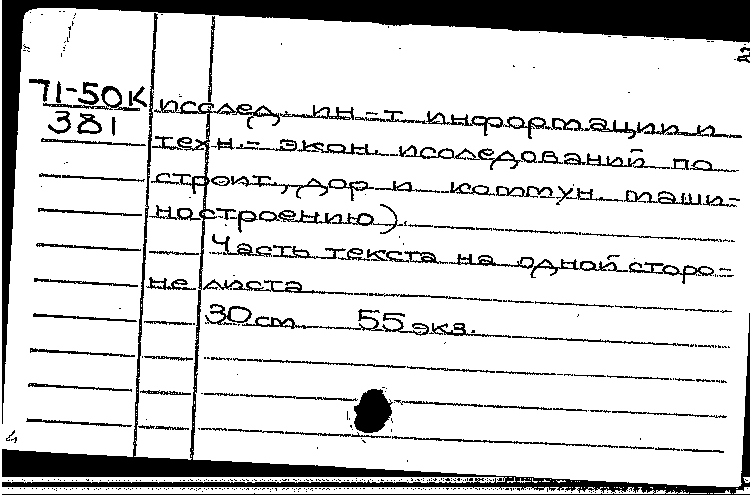 71-50К исслед. ин-т информации и
381 техн.- экон. исследований по
строит., дор и коммун. маши-
ностроению).
Часть текста на одной сторо-
не листа
30 cm. 55 экз.